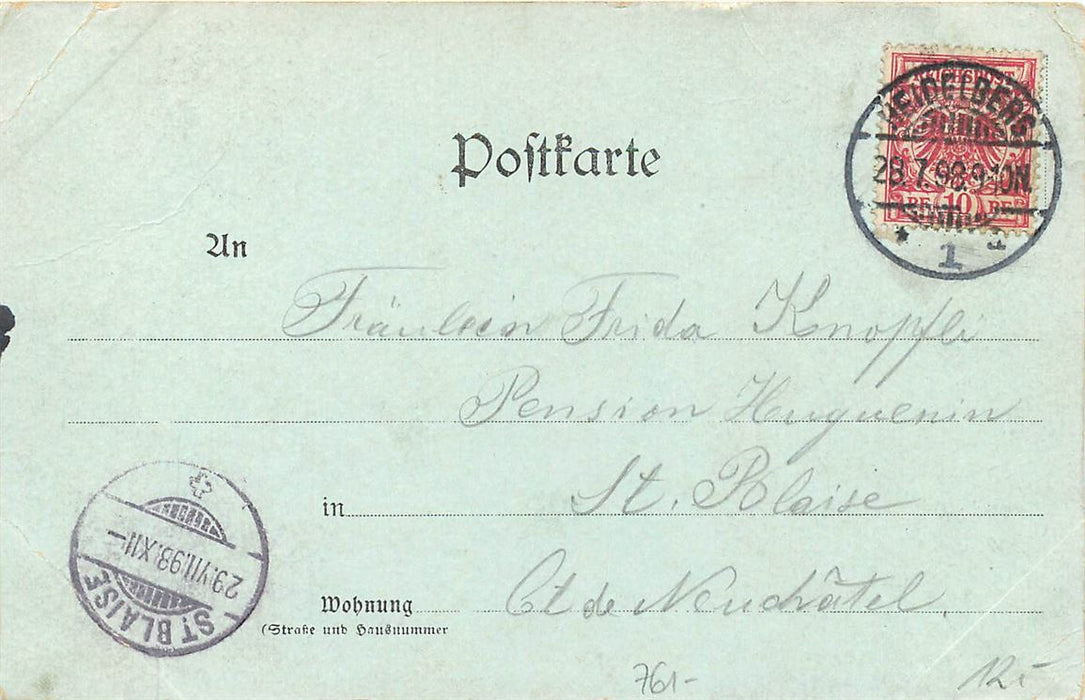 Poſtkarte
REICHSPOST
PF 10 PF
HEIDELBERG
28.7.98.9-10N.
1
An
Fräulein Frida Knopfli
Pension Huguenin
in St. Blaise
Wohnung Ct de Neuchâtel.
(Straße und Hausnummer
ST BLAISE
29.VII.98.XII-
761-